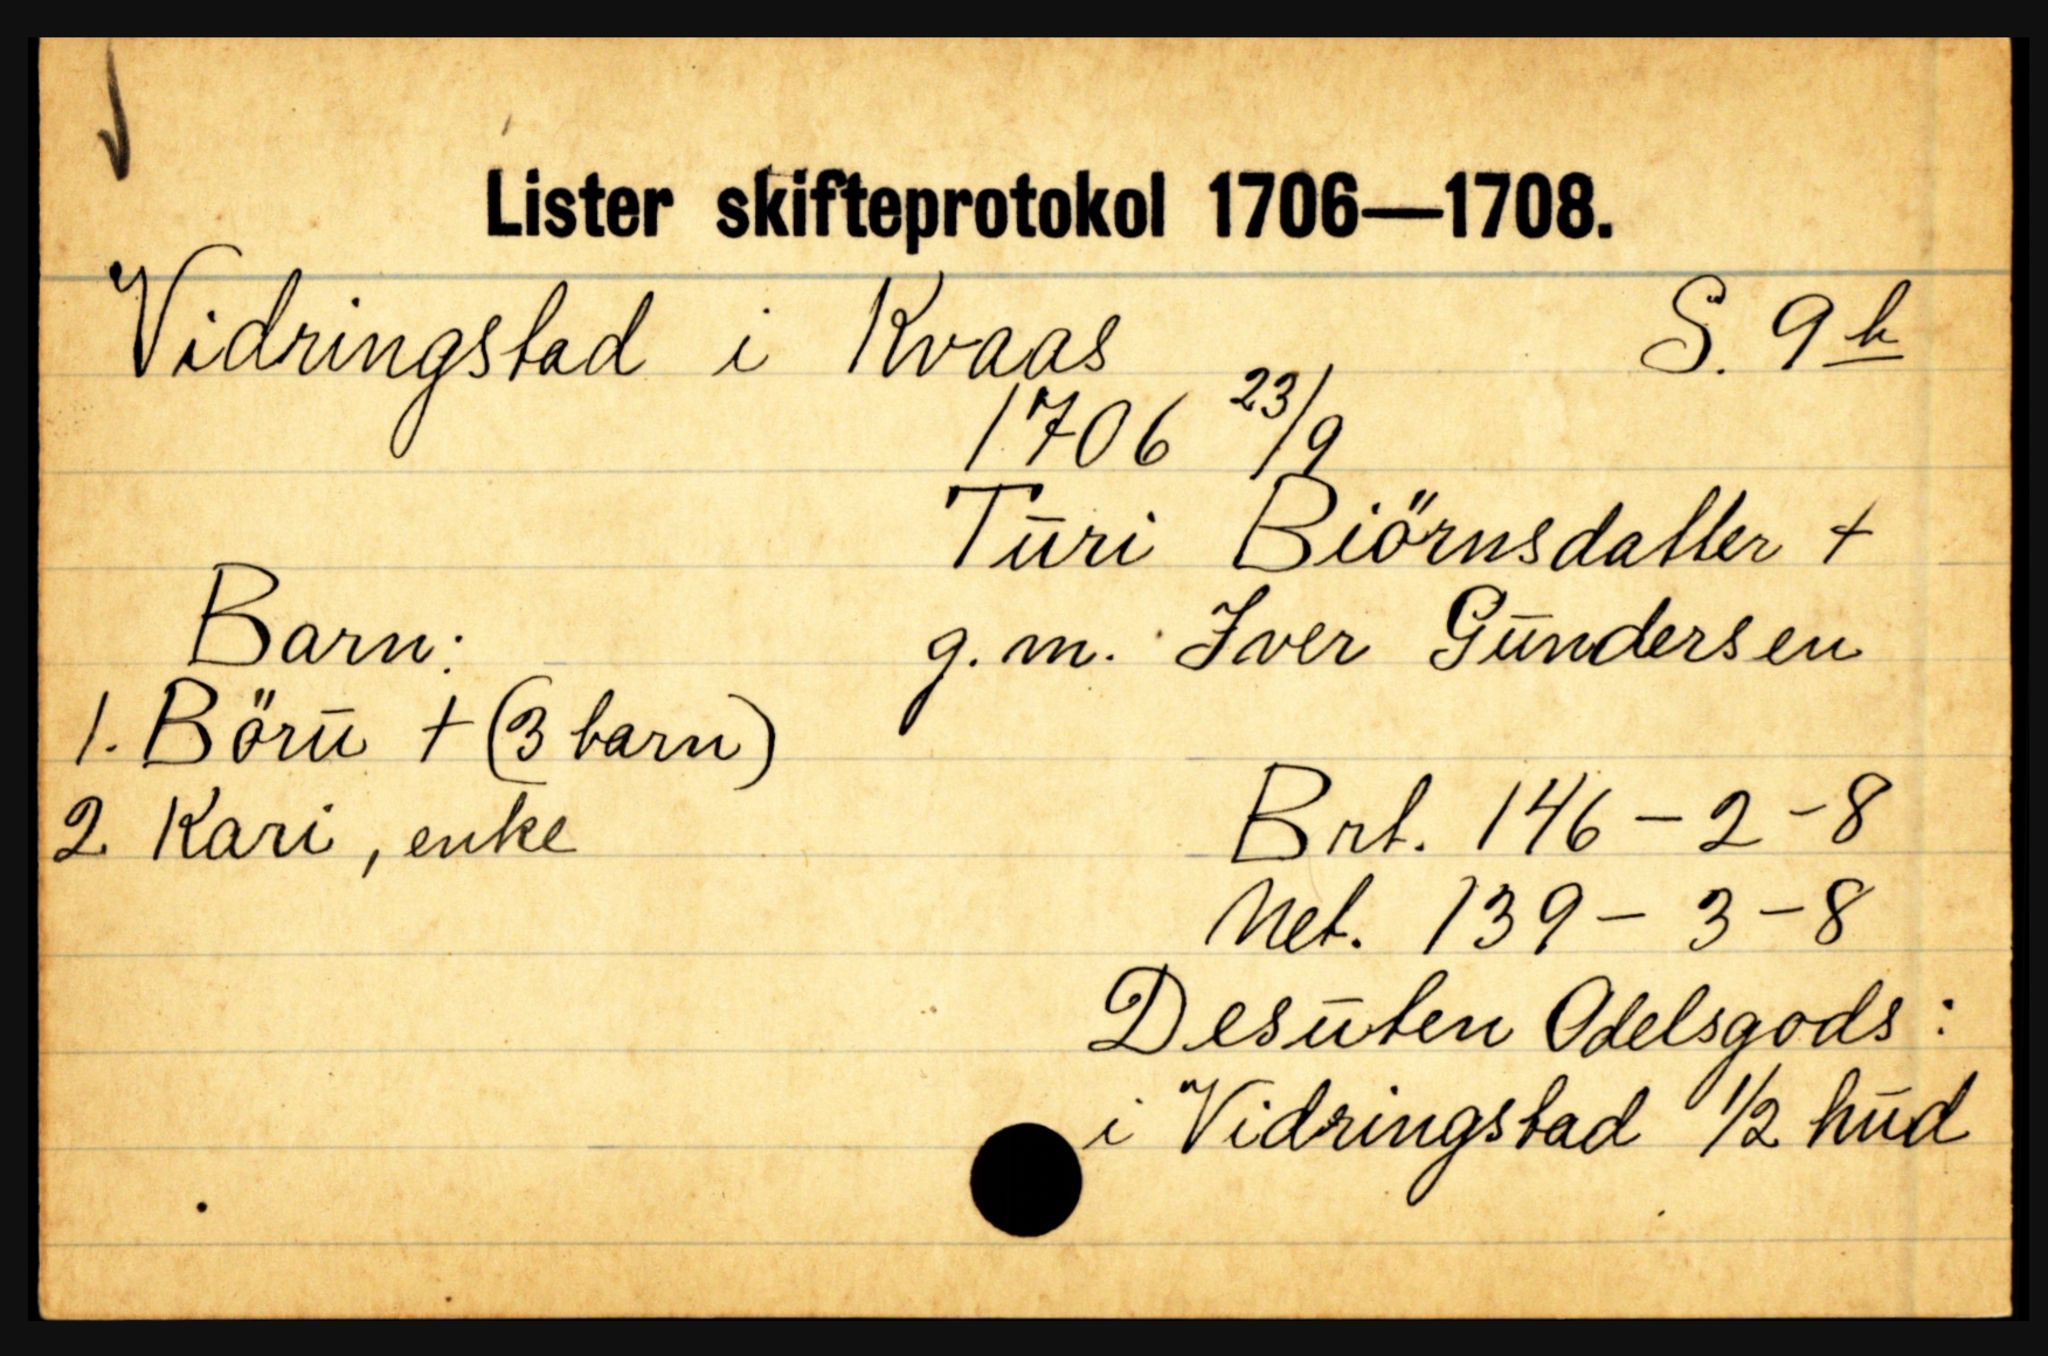 Lister skifteprotokol 1706—1708.
Vidringstad i Kvaas S. 9 b
1706 23/9
Tūri Biörnsdatter +
g. m. Iver Gūndersen
Barn:
1. Börū + (3 barn)
2 Kari, enke
Brt. 146 - 2 - 8
Net. 139 - 3 - 8
Desūten Odelsgods :
i Vidringstad 1/2 hūd